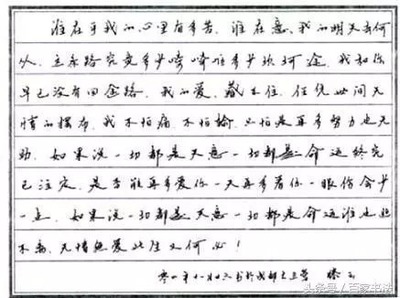 谁在乎我的心里有多苦,谁在意,我的明天去何
从,这条路究竟多少崎岖多少坎坷途,我和你
早已没有回头路,我的爱,藏不住,任凭世间无
情的摆布,我不怕痛不怕输,只怕是再多努力也无
助,如果说一切都是天意一切都是命运终究
已注定,是否能再多爱你一天再多看你一眼伤会少
一点,如果说一切都是天意一切都是命运谁也逃
不离,无情无爱此生又何必!
头条号/百家书法